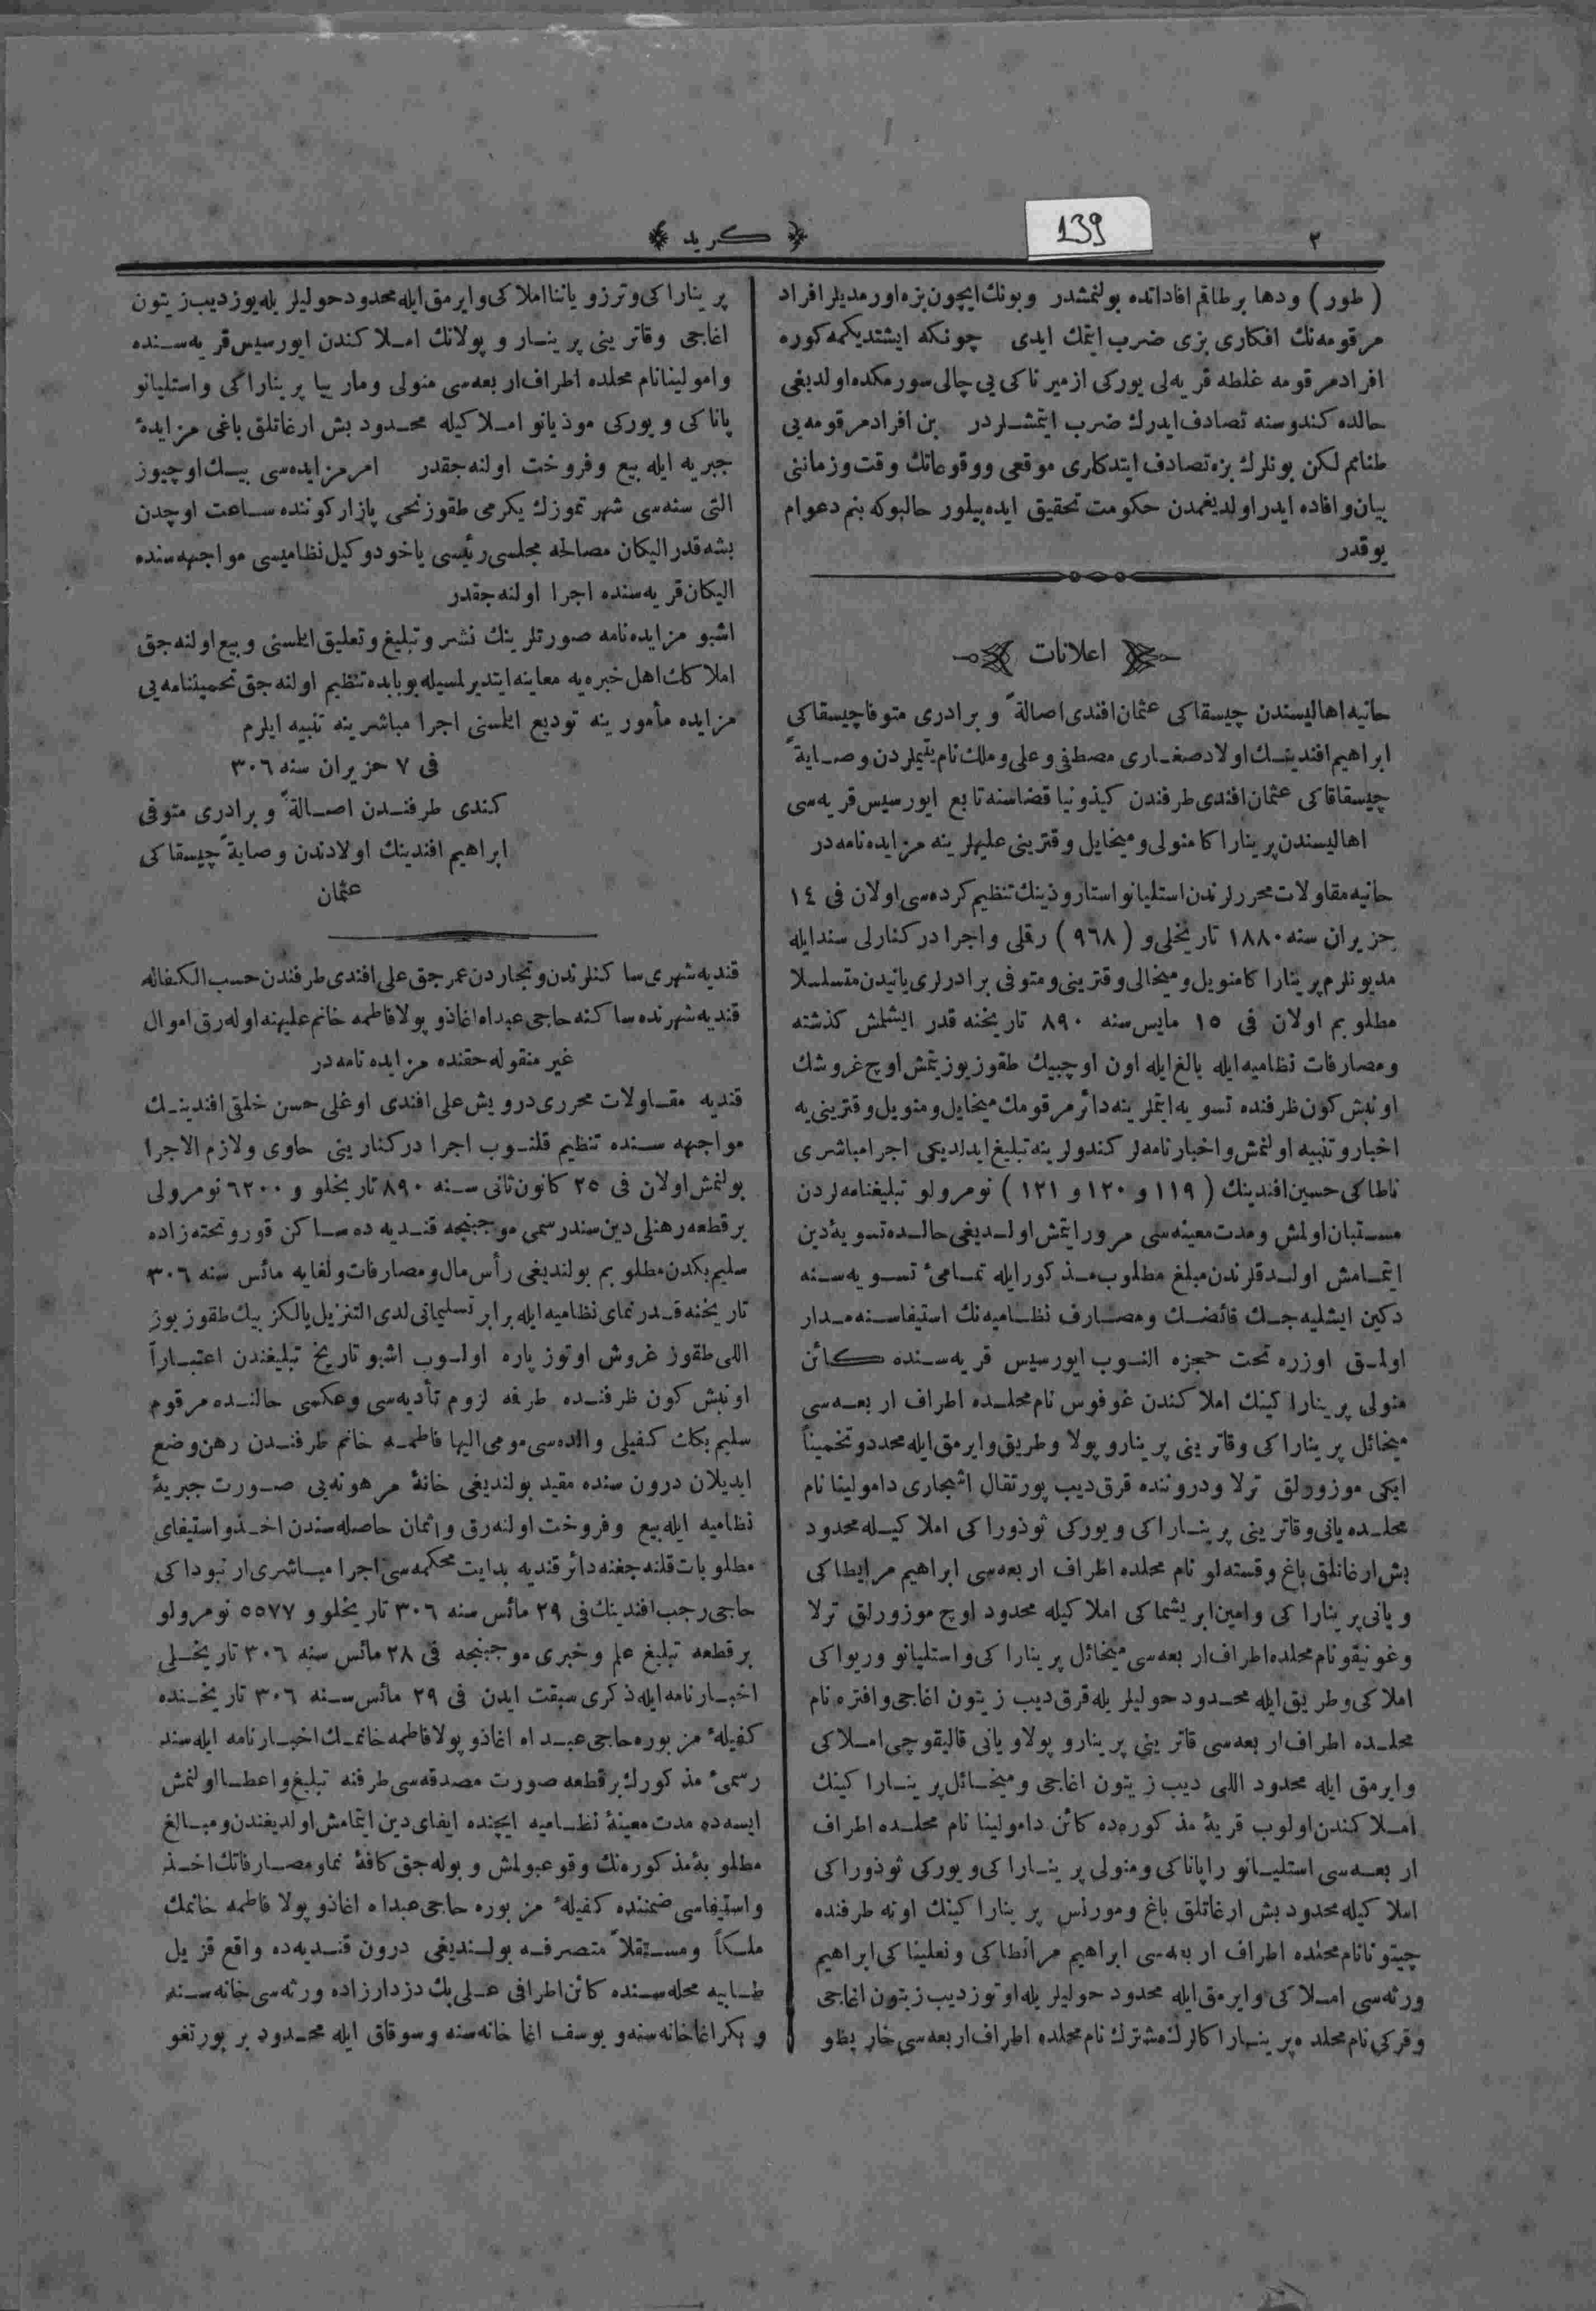 ٢
139
﴿ كريد ﴾
( طور ) ودها برطاقم افاداتده بولنمشدر وبونك ايچون بزه اورمديلر افراد
مرقومه‌نك افكارى بزى ضرب ايتمك ايدى چونكه ايشتديكمه كوره
افراد مرقومه غلطه قريه‌لى يوركى ازميرناكى يى چالى سورمكده اولديغى
حالده كندوسنه تصادف ايدرك ضرب ايتمشلردر بن افراد مرقومه‌يى
طنانم لكن بونلرك بزه تصادف ايتدكارى موقعى ووقوعاتك وقت وزماننى
بيان وافاده ايدر اولديغمدن حكومت تحقيق ايده‌بيلور حالبوكه بنم دعوام
يوقدر
اعلانات
حانيه اهاليسندن چيسقاكى عثمان افندى اصالةً و برادرى متوفا چيسقاكى
ابراهيم افندينك اولاد صغارى مصطفى وعلى وملك نام يتيملردن وصايةً
چيسقاقاكى عثمان افندى طرفندن كيذونيا قضاسنه تابع ايورسيس قريه‌سى
اهاليسندن پريناراكا منولى وميخايل وقترينى عليهلرينه مزايده‌نامه‌در
حانيه مقاولات محررلرندن استليانو استاروذينك تنظيم كرده‌سى اولان فى ١٤
حزيران سنه ١٨٨٠ تاريخلى و ( ٩٦٨ ) رقملى واجرا دركنارلى سند ايله
مديونلرم پريناراكا منويل وميخالى وقترينى ومتوفى برادرلرى يانيدن متسلسلا
مطلوبم اولان فى ١٥ مايس سنه ٨٩٠ تاريخنه قدر ايشلمش كذشته
ومصارفات نظاميه ايله بالغ ايله اون اوچبيك طقوزيوز يتمش اوچ غروشك
اونبش كون ظرفنده تسويه ايتملرينه دائر مرقومك ميخايل ومنويل وقترينى‌يه
اخبار وتنبيه اولنمش واخبارنامه‌لر كندولرينه تبليغ ايدلديكى اجرا مباشرى
ناطاكى حسين افندينك ( ١١٩ و ١٢٠ و ١٢١ ) نومرولو تبليغنامه‌لردن
مستبان اولمش ومدت معينه‌سى مرور ايتمش اولديغى حالده تسويۀ دين
ايتمامش اولدقلرندن مبلغ مطلوب مذكور ايله تمامئ تسويه‌سنه
دكين ايشليه‌جك فائضك ومصارف نظاميه‌نك استيفاسنه مدار
اولمق اوزره تحت حجزه النوب ايورسيس قريه‌سنده كائن
منولى پريناراكينك املاكندن غوفوس نام محلده اطراف اربعه‌سى
ميخائل پريناراكى وقاترينى پرينارو پولا وطريق وايرمق ايله محددو تخميناً
ايكى موزورلق ترلا ودروننده قرق ديب پورتقال اشجارى دامولينا نام
محلده يانى وقاترينى پريناراكى ويوركى ثوذوراكى املاكيله محدود
بش ارغاتلق باغ وقسته‌لو نام محلده اطراف اربعه‌سى ابراهيم مرابطاكى
ويانى پريناراكى وامين ابريشماكى املاكيله محدود اوچ موزورلق ترلا
وغونيقو نام محلده اطراف اربعه‌سى ميخائل پريناراكى واستليانو وريواكى
املاكى وطريق ايله محدود حوليلريله قرق ديب زيتون اغاجى وافتره نام
محلده اطراف اربعه‌سى قاترينى پرينارو پولاويانى قاليقوچى املاكى
وايرمق ايله محدود اللى ديب زيتون اغاجى وميخائل پريناراكينك
املاكندن اولوب قريۀ مذكوره‌ده كائن دامولينا نام محلده اطراف
اربعه‌سى استليانو راپاناكى ومنولى پريناراكى ويوركى ثوذوراكى
املاكيله محدود بش ارغاتلق باغ ومورنس پريناراكينك اوته طرفنده
چيتونانام محلده اطراف اربعه‌سى ابراهيم مرانطاكى ونعليناكى ابراهيم
ورثه‌سى املاكى وايرمق ايله محدود حوليلريله اوتوز ديب زيتون اغاجى
وقركى نام محلده پريناراكالرك مشترك نام محلده اطراف اربعه‌سى خاريطو
پريناراكى وترزو ياننا املاكى وايرمق ايله محدود حوليلريله يوز ديب زيتون
اغاجى وقاترينى پرينار و پولانك املاكندن ايورسيس قريه‌سنده
وامولينانام محلده اطراف اربعه‌سى منولى وماريا پريناراكى واستليانو
پاناكى ويوركى موذيانو املاكيله محدود بش ارغاتلق باغى مزايدۀ
جبريه ايله بيع وفروخت اولنه‌جقدر امر مزايده‌سى بيك اوچيوز
التى سنه‌سى شهر تموزك يكرمى طقوزنجى پازار كوننده ساعت اوچدن
بشه قدر اليكان مصالحه مجلسى رئيسى ياخود وكيل نظاميسى مواجهه‌سنده
اليكان قريه‌سنده اجرا اولنه‌جقدر
اشبو مزايده‌نامه صورتلرينك نشر وتبليغ وتعليق ايلمسنى وبيع اولنه‌جق
املاكك اهل خبره‌يه معاينه ايتديرلمسيله بوبابده تنظيم اولنه‌جق تحميننامه‌يى
مزايده مأمورينه توديع ايلمسنى اجرا مباشرينه تنبيه ايلرم
فى ٧ حزيران سنه ٣٠٦
كندى طرفندن اصالةً و برادرى متوفى
ابراهيم افندينك اولادندن وصايةً چيسقاكى
عثمان
قنديه شهرى ساكنلرندن وتجاردن عمرجق على افندى طرفندن حسب الكفاله
قنديه شهرنده ساكنه حاجى عبداه اغاذو پولا فاطمه خانم عليهنه اوله‌رق اموال
غير منقوله حقنده مزايده نامه‌در
قنديه مقاولات محررى درويش على افندى اوغلى حسن خلقى افندينك
مواجهه سنده تنظيم قلنوب اجرا دركنارينى حاوى ولازم الاجرا
بولنمش اولان فى ٢٥ كانون ثانى سنه ٨٩٠ تاريخلو و ٦٢٠٠ نومرولى
برقطعه رهنلى دين سند رسمى موجبنجه قنديه ده ساكن قورونحته زاده
سليم بكدن مطلوبم بولنديغى رأس مال ومصارفات ولغايه مائس سنه ٣٠٦
تاريخنه قدر نماى نظاميه ايله برابر تسليماتى لدى التنزيل يالكز بيك طقوزيوز
اللى طقوز غروش اوتوز پاره اولوب اشبو تاريخ تبليغندن اعتباراً
اونبش كون ظرفنده طرفه لزوم تأديه‌سى وعكسى حالنده مرقوم
سليم بكك كفيلى والده‌سى مومى اليها فاطمه خانم طرفندن رهن وضع
ايديلان درون سنده مقيد بولنديغى خانۀ مرهونه‌يى صورت جبريۀ
نظاميه ايله بيع وفروخت اولنه‌رق واثمان حاصله‌سندن اخذ واستيفاى
مطلوبات قلنه‌جغنه دائر قنديه بدايت محكمه‌سى اجرا مباشرى ارنبوداكى
حاجى رجب افندينك فى ٢٩ مائس سنه ٣٠٦ تاريخلو و ٥٥٧٧ نومرولو
برقطعه تبليغ علم وخبرى موجبنجه فى ٢٨ مائس سنه ٣٠٦ تاريخلى
اخبارنامه ايله ذكرى سبقت ايدن فى ٢٩ مائس سنه ٣٠٦ تاريخنده
كفيلۀ مزبوره حاجى عبداه اغاذو پولا فاطمه خانمك اخبارنامه ايله سند
رسمئ مذكورك برقطعه صورت مصدقه‌سى طرفنه تبليغ واعطا اولنمش
ايسه‌ده مدت معينۀ نظاميه ايچنده ايفاى دين ايتمامش اولديغندن ومبالغ
مطلوبۀ مذكوره‌نك وقوعبولمش وبوله‌جق كافۀ نماو مصارفاتك اخذ
واستيفاسى ضمننده كفيلۀ مزبوره حاجى عبداه اغاذو پولا فاطمه خانمك
ملكاً ومستقلاً متصرفه بولنديغى درون قنديه‌ده واقع قزيل
طابيه محله‌سنده كائن اطرافى على بك دزدارزاده ورثه‌سى خانه‌سنه
و بكراغا خانه‌سنه و يوسف اغا خانه‌سنه وسوقاق ايله محدود بر پورتغو